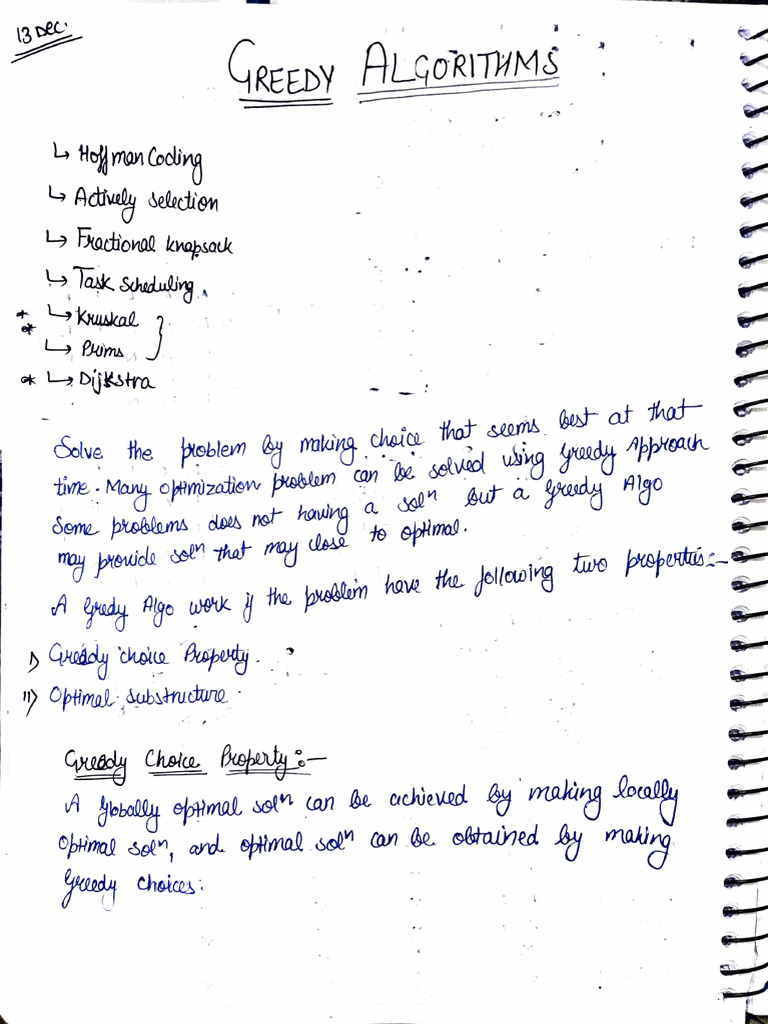 13 Dec.
GREEDY ALGORITHMS
↳ Hoffman Coding
↳ Actively selection
↳ Fractional knapsack
↳ Task scheduling.
* ↳ Kruskal
* ↳ Prims
* ↳ Dijkstra
Solve the problem by making choice that seems best at that
time. Many optimization problem can be solved using Greedy Approach
Some problems does not having a solⁿ but a Greedy Algo
may provide solⁿ that may close to optimal.
A Gredy Algo work if the problem have the following two properties:-
i) Greedy choice Property.
ii) Optimal substructure.
Greedy Choice Property:-
A globally optimal solⁿ can be achieved by making locally
optimal solⁿ, and optimal solⁿ can be obtained by making
Greedy choices.